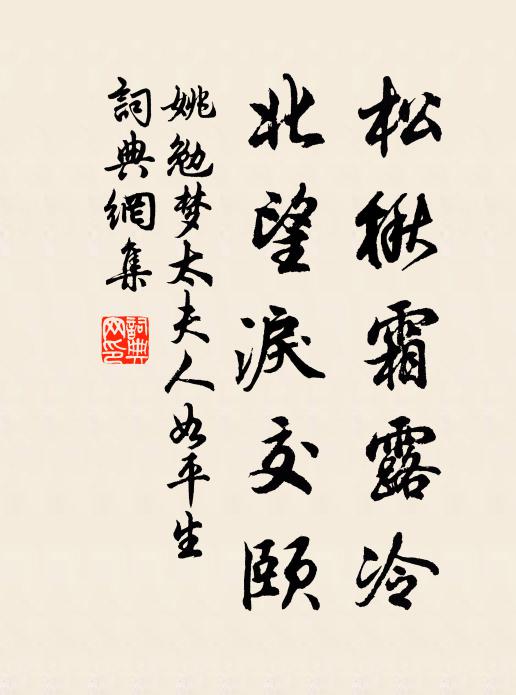 松楸霜露冷
北望淚交頤
姚勉梦太夫人如平生
詞典網集
詞典网印